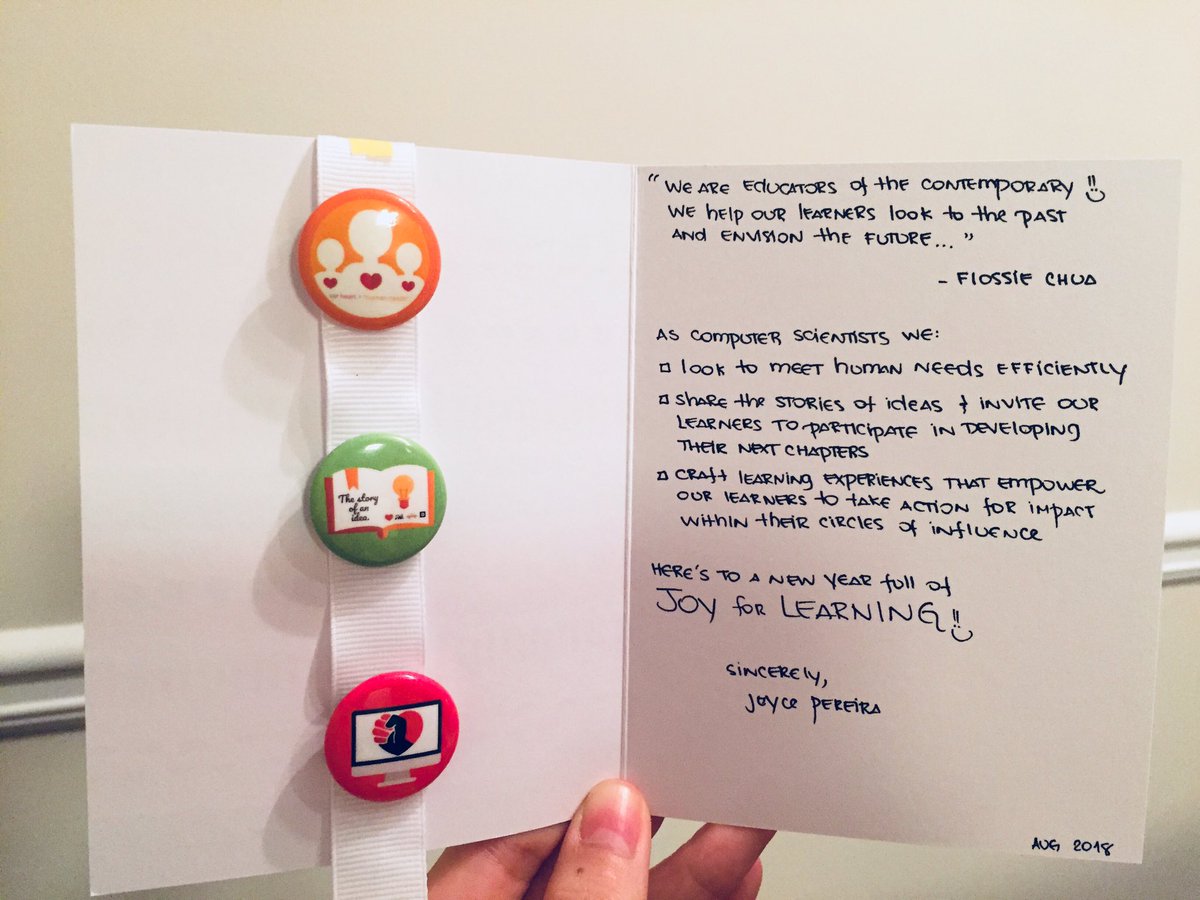 The story
of an
idea.
"WE ARE EDUCATORS of the CONTEMPORARY
WE help OUR LEARNERS look to the PAST
AND ENVISION the FUTURE..."
- FLOSSIE CHUA
AS COMPUTER SCIENTISTS WE:
look to MEET human NEEDS EFFICIENTLY
share the STORIES of ideas & INVITE OUR
LEARNERS TO PARTICIPATE IN DEVELOPING
THEIR NEXT CHAPTERS
CRAFT LEARNING EXPERIENCES THAT EMPOWER
OUR LEARNERS to TAKE ACTION FOR IMPACT
WITHIN their CIRCLES of INFLUENCE
HERE'S TO A NEW YEAR full of
JOY for LEARNING!!
SINCERELY,
Joyce PEREIRA
AUG 2018